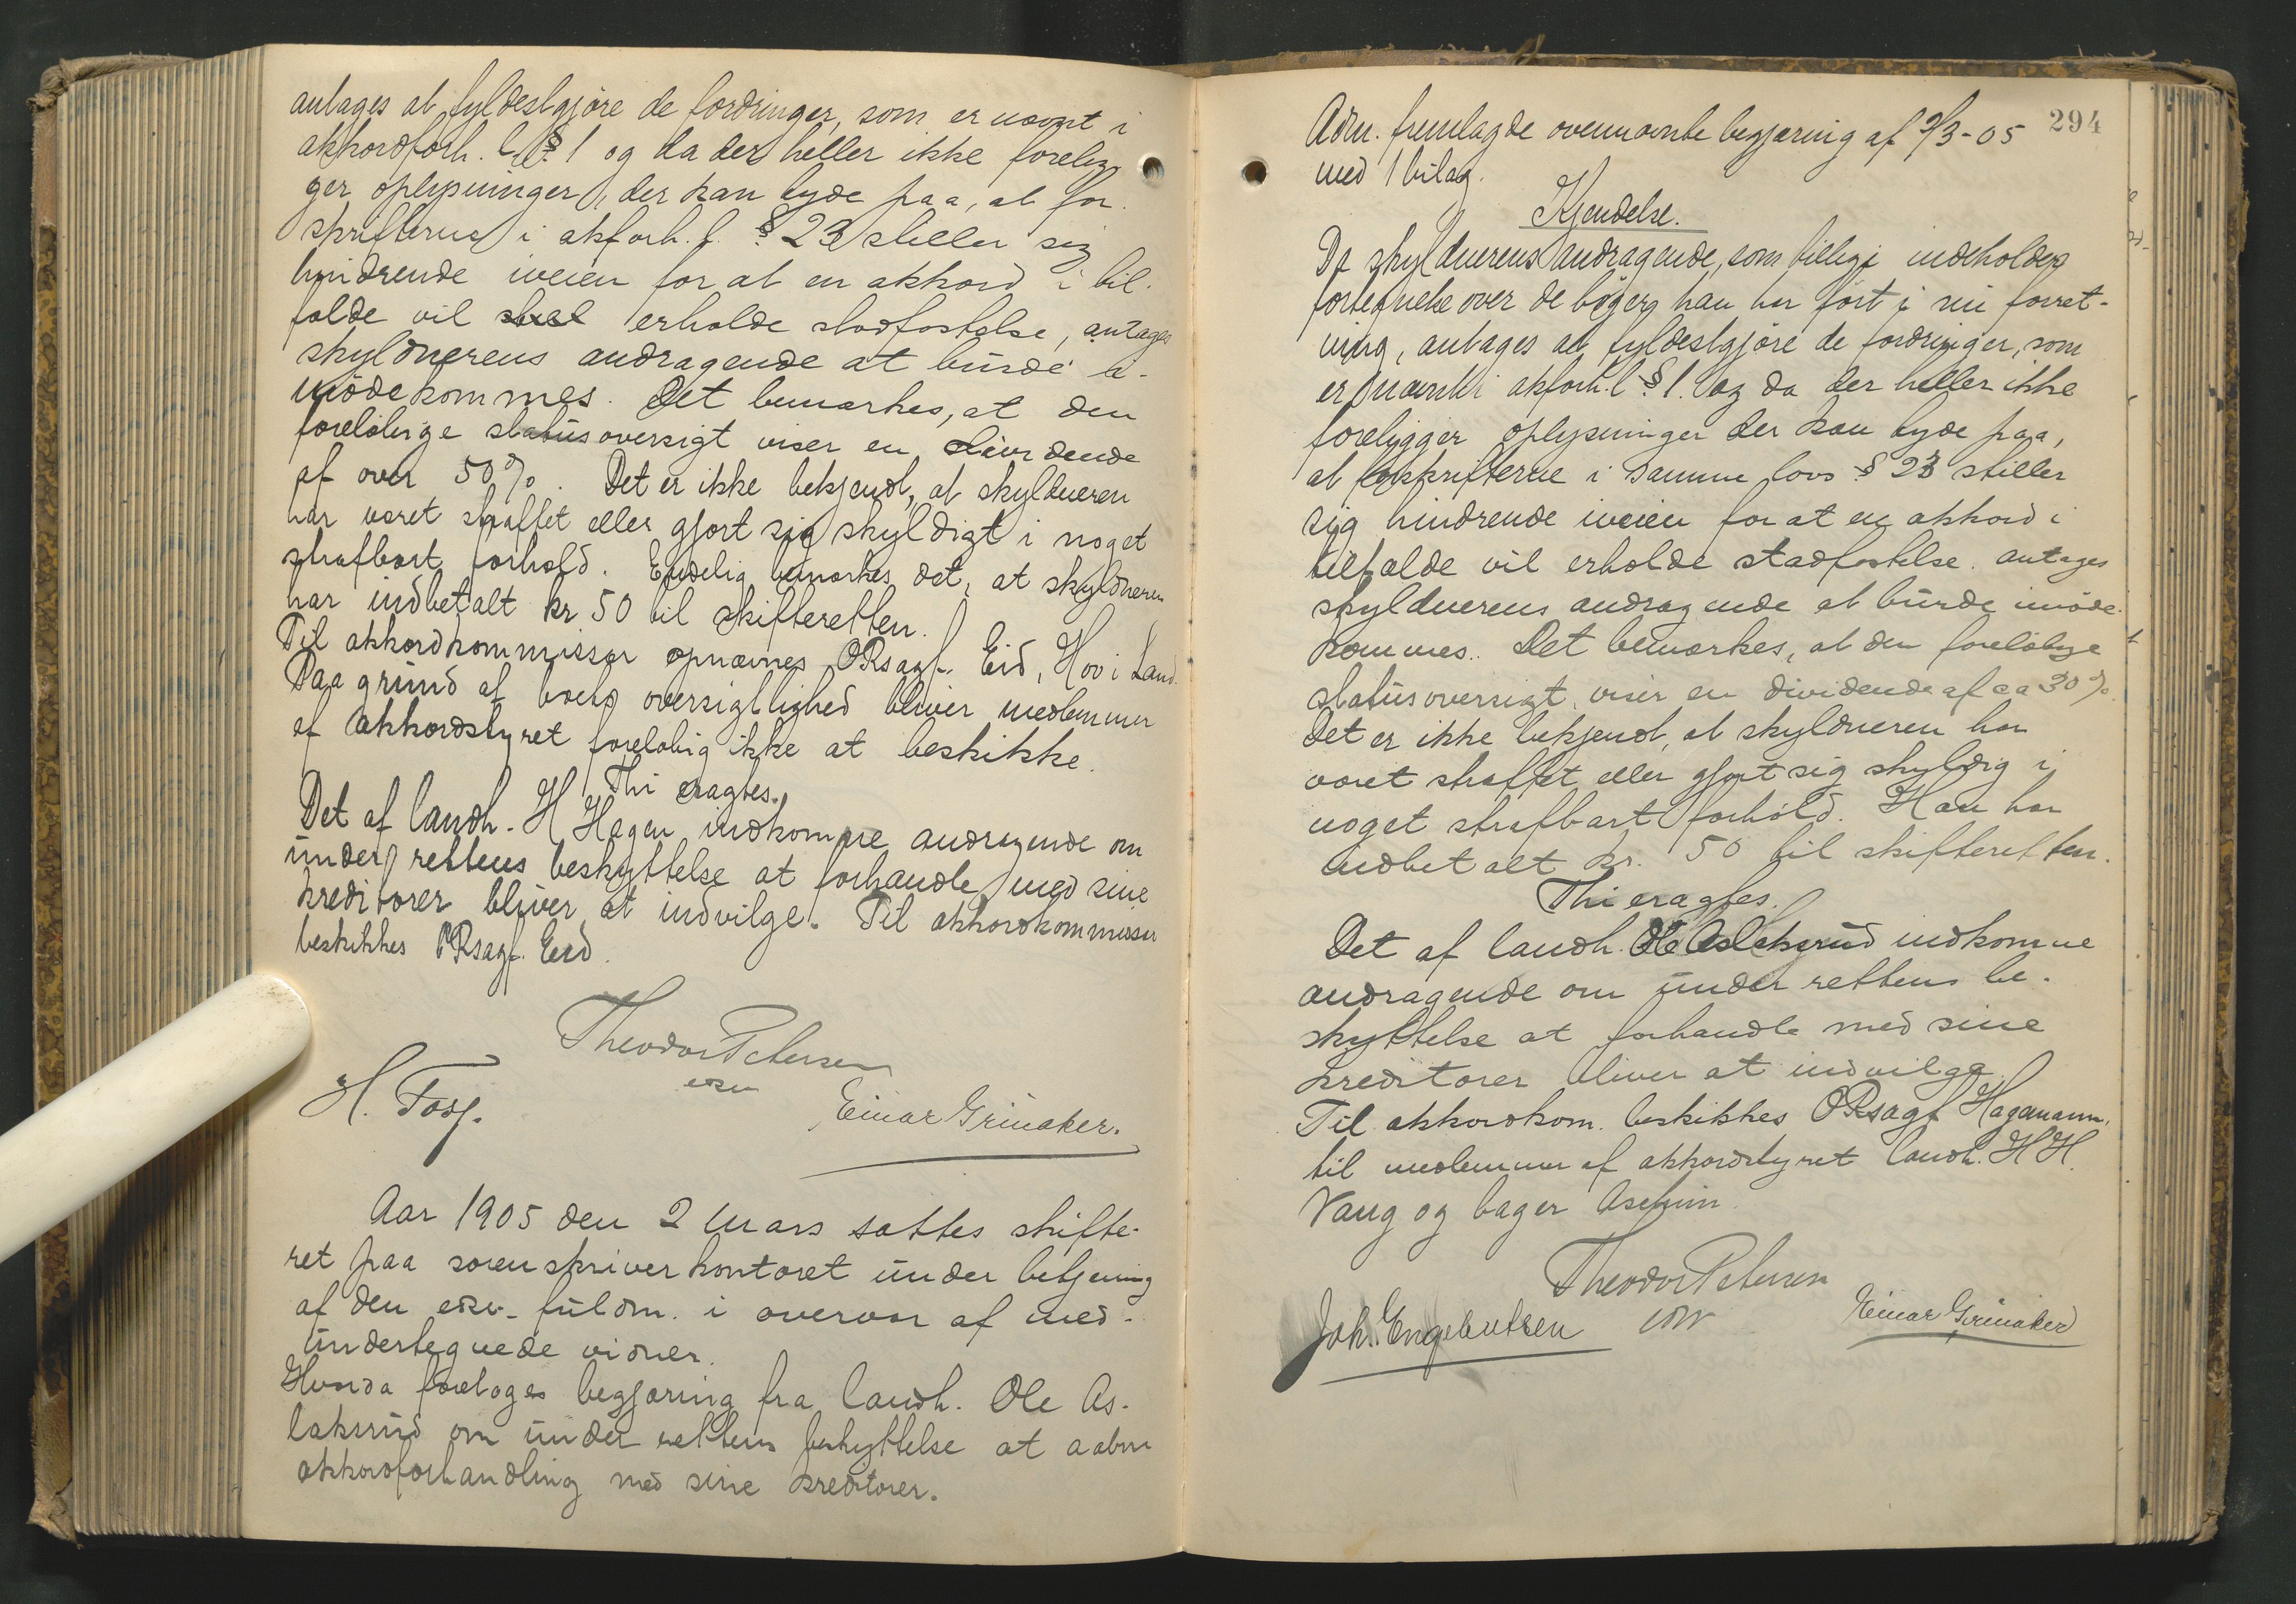 antages at fyldestgjøre de fordringer, som er nævnt i
akkordforh. l. § 1 og da der heller ikke forelig
ger oplysninger, der kan tyde paa, at for
skrifterne i akforh. l. § 23 stiller sig
hindrende iveien for at en akkord i til
fælde vil skal erholde stadfæstelse, antages
skyldnerens andragende at burde i-
mødekommes. Det bemærkes, at den
foreløbige statusoversigt viser en dividende
af over 50 %. Det er ikke bekjendt, at skyldneren
har været straffet eller gjort sig skyldigt i noget
strafbart forhold. Endelig bemærkes det, at skyldneren
har indbetalt kr 50 til skifteretten.
Til akkordkommissær opnævnes ORsagf. Eid, Hov i Land.
Paa grund af boets oversigtlighed bliver medlemmer
af akkordstyret foreløbig ikke at beskikke.
Thi eragtes.
Det af landh. H Hagen indkomne andragende om
under rettens beskyttelse at forhandle med sine
kreditorer bliver at indvilge. Til akkordkommissær
beskikkes ORsagf. Eid.
Theodor Petersen
edsv
H. Fosj.
Einar Grinaker.
Aar 1905 den 2 Mars sattes skifte-
ret paa sorenskriverkontoret under betjening
af den edsv. fuldm. i overvær af med-
undertegnede vidner.
Hvorda foretoges begjæring fra landh. Ole As-
laksrud om under rettens beskyttelse at aabne
akkordforhandling med sine kreditorer.
294
Adm. fremlagde ovennævnte begjæring af 2/3-05
med 1 bilag.
Kjendelse.
Da skyldnerens andragende, som tillige indeholder
fortegnelse over de bøger, han har ført i sin forret-
ning, antages at fyldestgjøre de fordringer, som
er nævnt i akforh. l § 1. og da der heller ikke
foreligger oplysninger der kan tyde paa,
at forskrifterne i samme lovs § 23 stiller
sig hindrende iveien for at en akkord i
tilfælde vil erholde stadfæstelse. antages
skyldnerens andragende at burde imøde-
kommes. Det bemærkes, at den foreløbige
statusoversigt viser en dividende af ca 30 %.
Det er ikke bekjendt, at skyldneren har
været straffet eller gjort sig skyldig i
noget strafbart forhold. Han har
indbetalt kr. 50 til skifteretten.
Thi eragtes.
Det af landh. Ole Aslaksrud indkomne
andragende om under rettens be-
skyttelse at forhandle med sine
kreditorer bliver at indvilge.
Til akkordkom. beskikkes ORsagf Hagemann,
til medlemmer af akkordstyret landh. H H
Vang og bager Aseheim.
Theodor Petersen
edsv
Joh. Engebretsen
Einar Grinaker